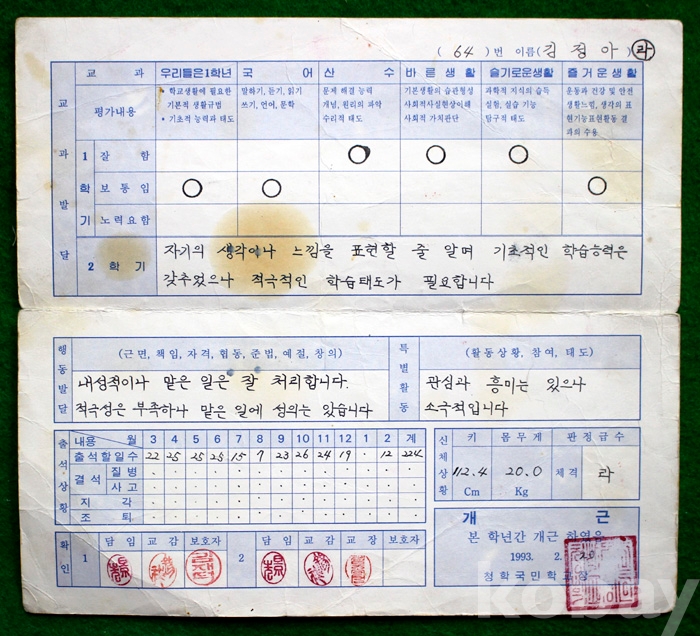 ( 64 ) 번 이름 ( 김 정 아 ) 라
교 과 우리들은1학년 국 어 산 수 바 른 생 활 슬기로운생활 즐 거 운 생 활
평가내용
• 학교생활에 필요한 기본적 생활규범
• 기초적 능력과 태도
말하기, 듣기, 읽기
쓰기, 언어, 문학
문제 해결 능력
개념, 원리의 파악
수리적 태도
기본생활의 습관형성
사회적사실현상이해
사회적 가치판단
과학적 지식의 습득
실험, 실습 기능
탐구적 태도
운동과 건강 및 안전
생활느낌, 생각의 표
현기능표현활동 결
과의 수용
교 과 발 달
1 학 기
잘 함 ○ ○ ○
보 통 임 ○ ○ ○
노 력 요 함
2 학 기
자기의 생각이나 느낌을 표현할 줄 알며 기초적인 학습능력은
갖추었으나 적극적인 학습태도가 필요합니다
행 동 발 달
(근면, 책임, 자격, 협동, 준법, 예절, 창의)
내성적이나 맡은 일은 잘 처리합니다.
적극성은 부족하나 맡은 일에 성의는 있습니다
특 별 활 동
(활동상황, 참여, 태도)
관심과 흥미는 있으나
소극적입니다
출 석 상 황
내용 월 3 4 5 6 7 8 9 10 11 12 1 2 계
출석할일수 22 25 25 25 15 7 23 26 24 19 · 12 224
결석 질 병
사 고
지 각
조 퇴
신 체 상 황
키 몸 무 게 판 정 급 수
112.4 Cm 20.0 Kg 체격 라
확 인
1 담 임 교 감 보호자
2 담 임 교 감 교 장 보호자
개 근
본 학년간 개근 하였음
1993. 2. 20
청 학 국 민 학 교 장
kobay